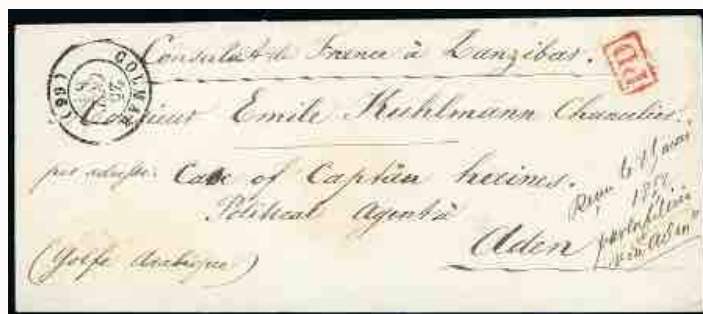 Consulat de France à Zanzibar.
PD
COLMAR
(66)
Monsieur Emile Kuhlmann Chancelier.
par adresse: Care of Captain heines.
Political Agent à
Aden
(Golfe Arabique)
Reçu le
1852
par
"Aden"